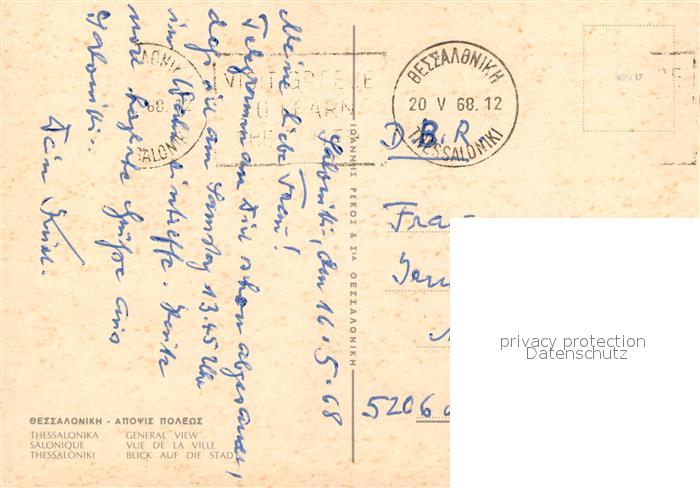 Saloniki, den 16.5.68
Meine liebe Frau!
Telegramm an Dich schon abgesandt,
daß ich am Samstag 13.45 Uhr
in eintreffe. Heute
noch herzliche Grüße aus
Saloniki.
Dein
ΘΕΣΣΑΛΟΝΙΚΗ - ΑΠΟΨΙΣ ΠΟΛΕΩΣ
THESSALONIKA GENERAL VIEW
SALONIQUE VUE DE LA VILLE
THESSALONIKI BLICK AUF DIE STADT
ΙΩΑΝΝΗΣ ΡΕΚΟΣ & ΣΙΑ ΘΕΣΣΑΛΟΝΙΚΗ
VISIT GREECE
TO LEARN
ΘΕΣΣΑΛΟΝΙΚΗ
20 V 68.12
THESSALONIKI
ΑΛΟΝΙΚ
68.12
SALONI
D.B.R
Frau
5206
privacy protection
Datenschutz